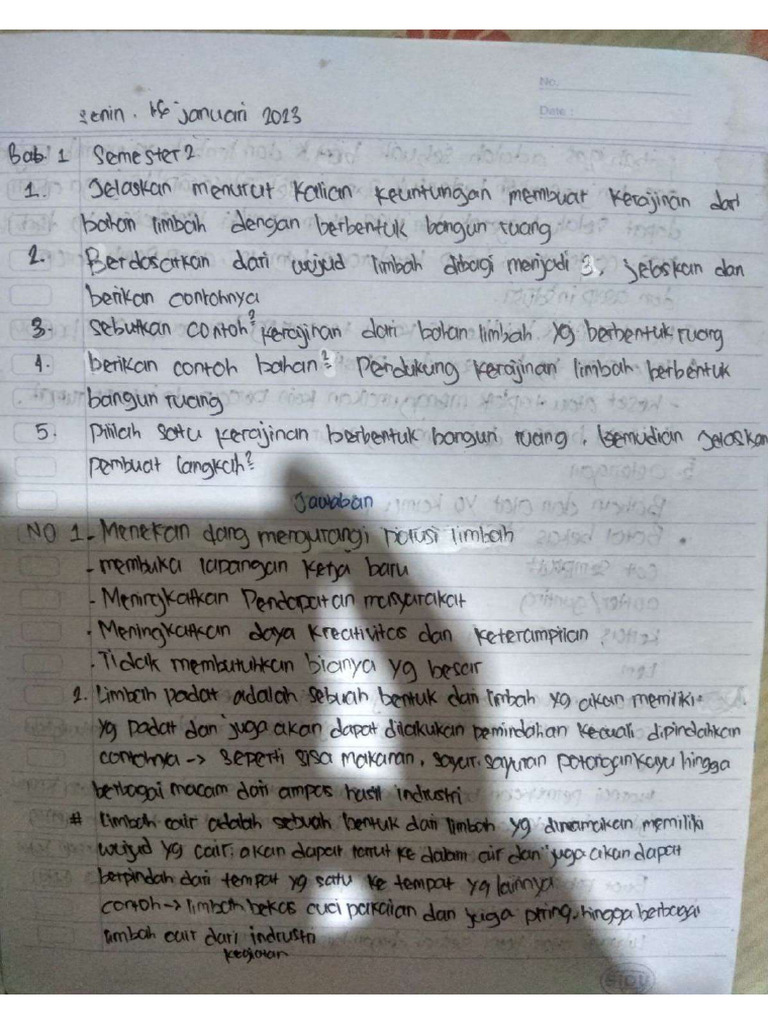 No.
Date :
Senin. 16 januari 2023
Bab 1 Semester 2
1. Jelaskan menurut kalian keuntungan membuat kerajinan dari
bahan limbah dengan berbentuk bangun ruang
2. Berdasarkan dari wujud limbah dibagi menjadi 3, Jelaskan dan
berikan contohnya
3. Sebutkan contoh² kerajinan dari bahan limbah yg berbentuk ruang
4. berikan contoh bahan² Pendukung kerajinan limbah berbentuk
bangun ruang
5. Pililah satu kerajinan berbentuk bangun ruang, kemudian Jelaskan
pembuat langkah²
Jawaban
NO 1 - Menekan dang mengurangi Polusi limbah
- membuka lapangan kerja baru
- Meningkatkan Pendapatan masyarakat
- Meningkatkan daya kreativitas dan keterampilan.
- Tidak membutuhkan bianya yg besar
2. Limbah padat adalah sebuah bentuk dari limbah yg akan memiliki
yg padat dan juga akan dapat dilakukan pemindahan kecuali dipindahkan
contohnya -> seperti sisa makanan, sayur, sayuran potongan kayu hingga
berbagai macam dari ampas hasil indrustri
# Limbah cair adalah sebuah bentuk dari limbah yg dinamakan memiliki
wujud yg cair, akan dapat larut ke dalam air dan juga akan dapat
berpindah dari tempat yg satu ke tempat yg lainnya
contoh -> limbah bekas cuci pakaian dan juga piring, hingga berbagai
limbah cair dari indrustri
kegiatan
SIDU